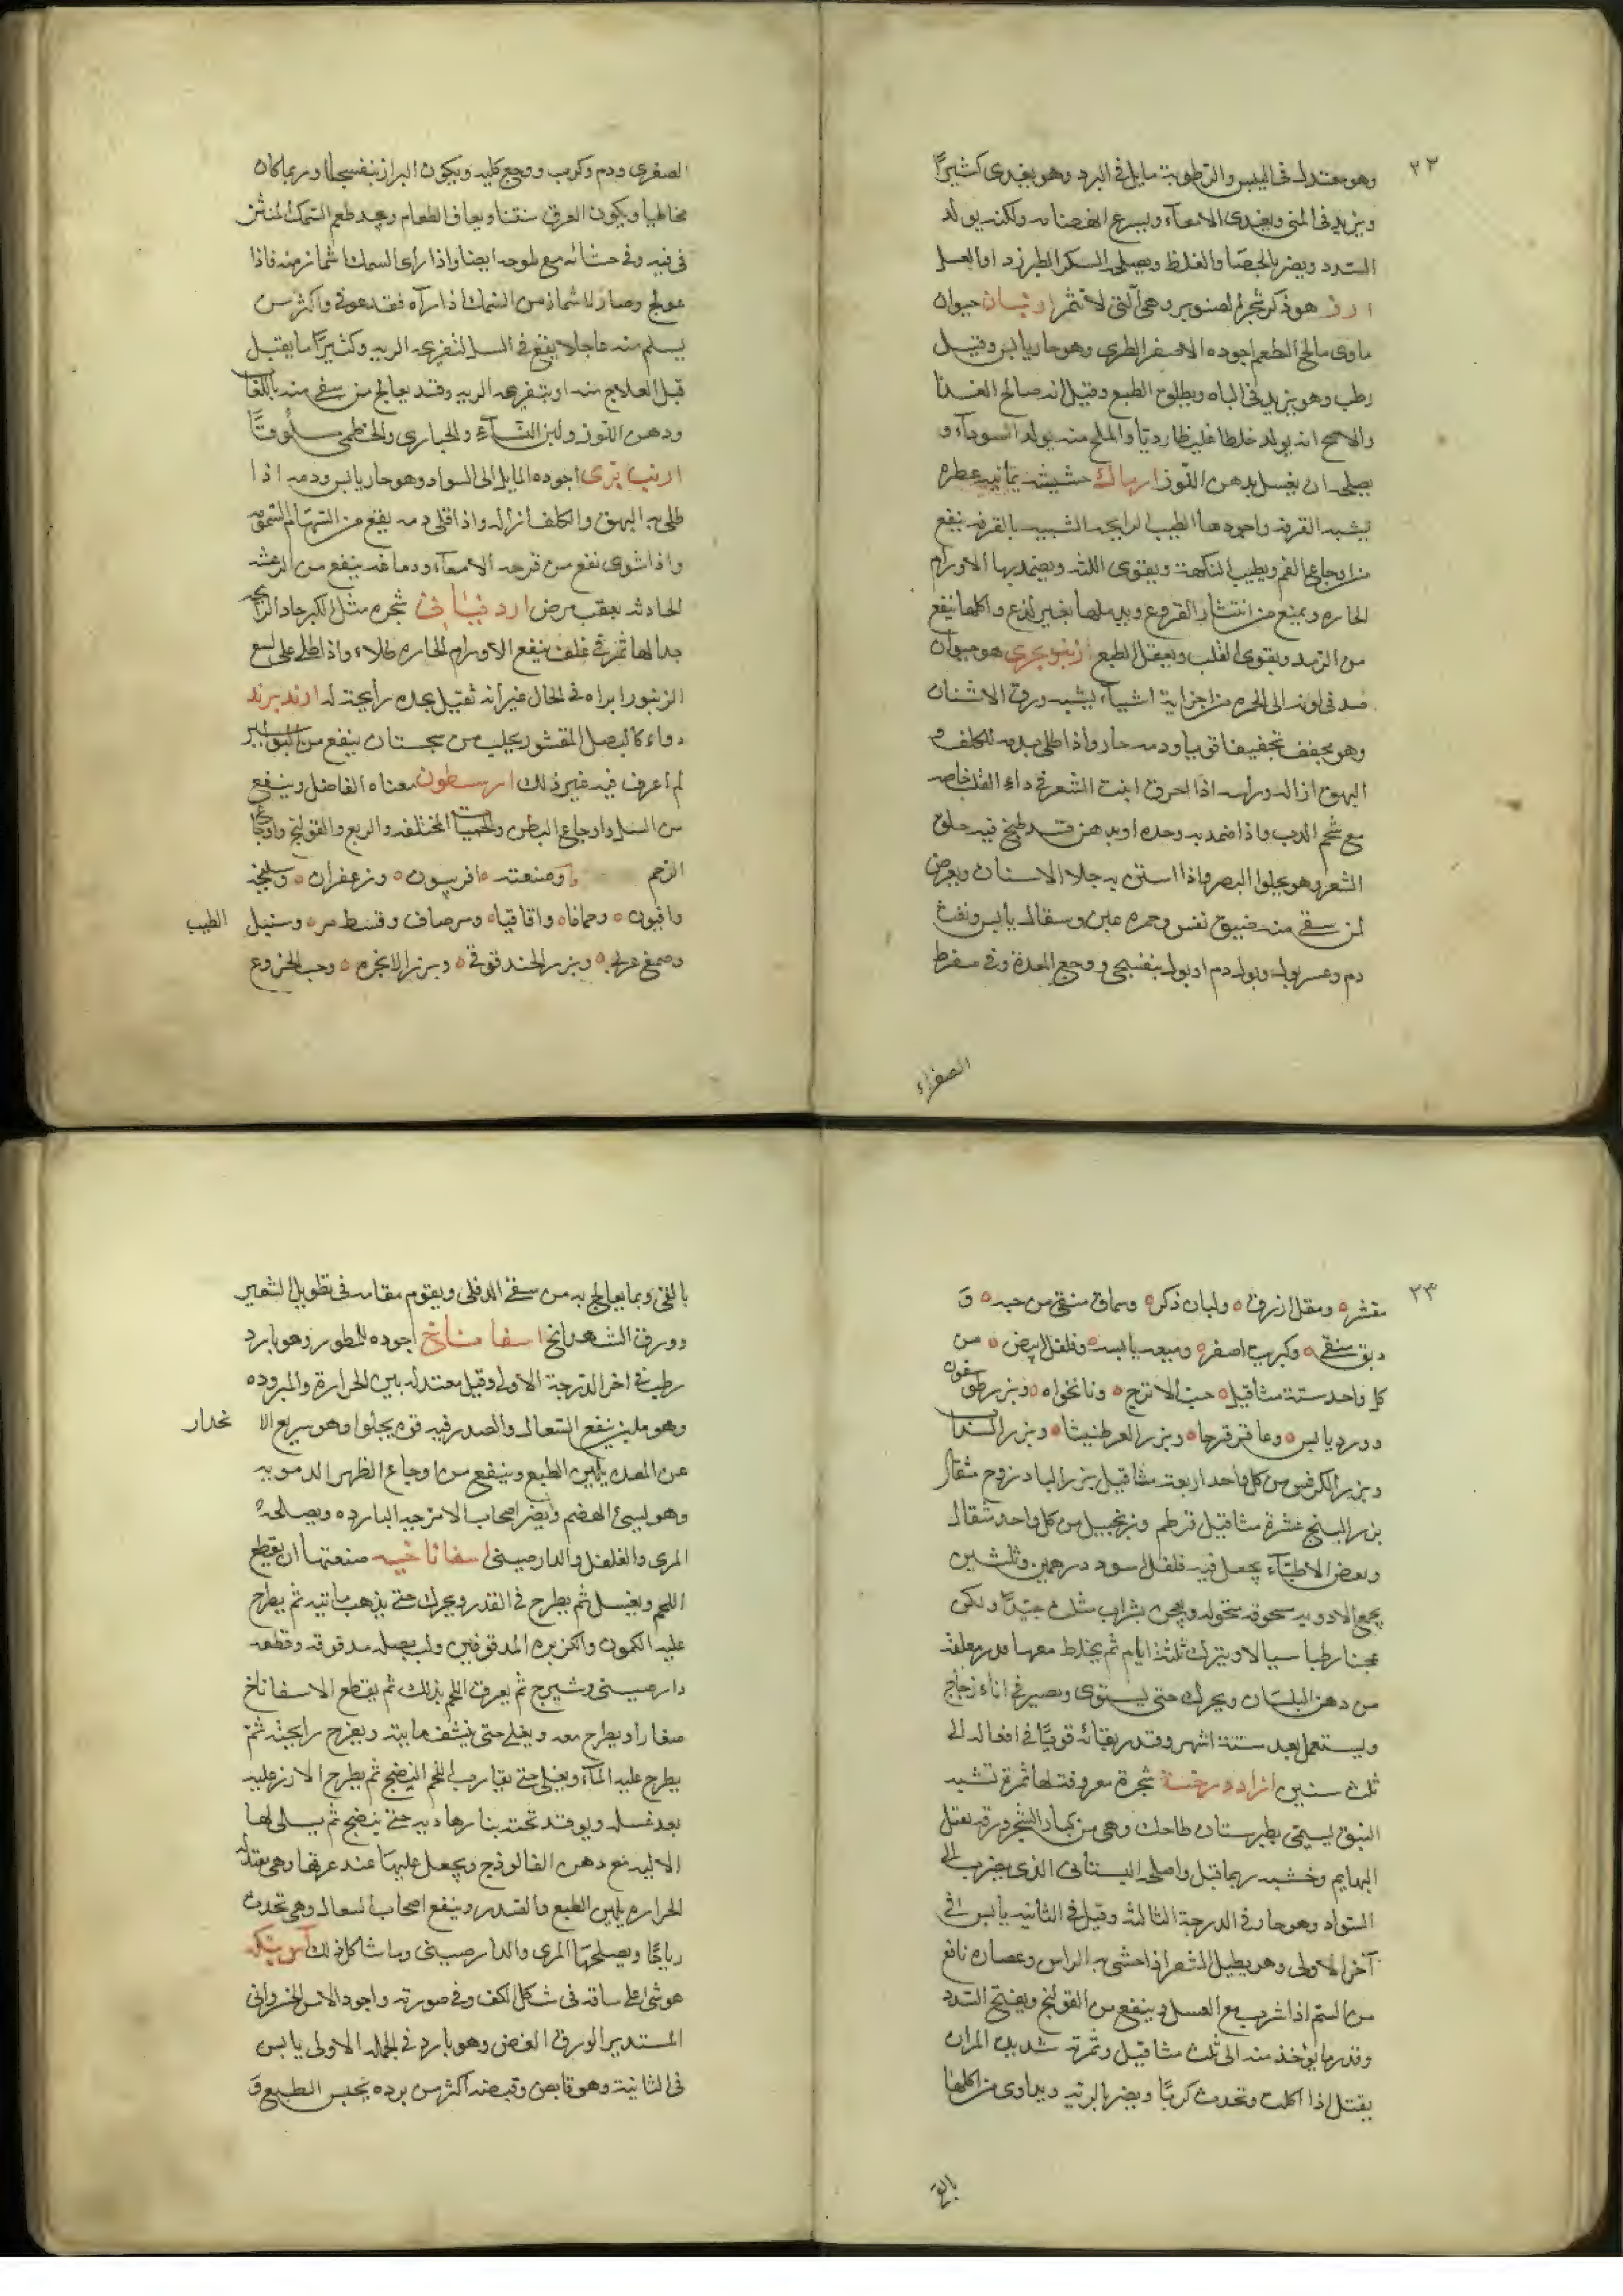 ٣٢
وهو معتدل في اليبس والرطوبة مايل في البرد وهو يغذي كثيرًا
ويزيد في المني ويغذي الامعآء ويسرع انهضامه ولكنه يولد
السدد ويضر بالحصا والغلظ ويصلحه السكر الطبرزد او العسل
ارز هو ذكر شجرة الصنوبر وهي التي لا تثمر اربيان حيوان
ماوي مالح الطعم اجوده الاصفر الطري وهو حار يابس وقيل
رطب وهو يزيد في الباه ويطلق الطبع وقيل انه صالح الغذا
والاصح انه يولد خلطا غليظا رديا والمملح منه يولد السودآء و
يصلحه ان يغسل بدهن اللوز ارماك حشيشة يمانيه عطره
يشبه القرفه واجودها الطيب الرايحه الشبيه بالقرفه ينفع
من اوجاع الفم ويطيب النكهة ويقوي اللثه ويضمد بها الاورام
الحاره ويمنع من انتشار القروح ويدملها بغير لذع واكلها ينفع
من الرمد ويقوي القلب ويعقل الطبع ارنب بحري هو حيوان
صدفي لونه الى الحمره من اجزايه اشيآء يشبه ورق الاشنان
وهو يجفف تجفيفا قويا ودمه حار واذا طلي بدمه الكلف و
البهق ازاله وراسه اذا احرق انبت الشعر في داء الثعلب خاصه
مع شحم الدب واذا ضمد به وحده او بدهن قد طبخ فيه حلق
الشعر وهو يجلوا البصر واذا استن به جلا الاسنان ويعرض
لمن سقي منه ضيق نفس وحمره عين وسعال يابس ونفث
دم وعسر بول وبول دم او بول بنفسجي ووجع المعدة وقي مفرط
الصفراء
الصفري ودم وكرب ووجع كليه ويكون البراز بنفسجيا او ربما كان
مخاطيا ويكون العرق منتنا ويعاف الطعام ويجد طعم السمك المنتن
في فيه وفي جشائه مع ملوحه ايضا واذا رأى السمك اشمأز منه فاذا
عولج وصار لا يشماز من السمك اذا رآه فقد عوفي واكثر من
يسلم منه عاجلا يقع في السل لتقريحه الريه وكثيرًا ما يقتل
قبل العلاج منه او بتقريحه الريه وقد يعالج من سقي منه باللعاب
ودهن اللوز ولبن النسآء والخبازي والخطمي سلوقًا
ارنب بري اجوده المايل الى السواد وهو حار يابس ودمه اذا
طلي به البهق والكلف ازاله واذا قلي دمه ينفع من السهام المسمومه
واذا شوي نفع من قرحه الامعآء ودماغه ينفع من الرعشه
الحادثه بعقب مرض اردفياني شجره مثل الكبر حاد الرايحه
جدا لها ثمر في غلف ينفع الاورام الحاره طلاء واذا طلي على لسع
الزنبور ابراه في الحال غير انه ثقيل بحده رايحته له ارندبرند
دواء كالبصل المقشور يجلب من سجستان ينفع من البواسير
لم اعرف فيه غير ذلك ارسطون معناه الفاضل وينفع
من السل واوجاع البطن والحميات المختلفه والربع والقولنج واوجاع
الرحم وصنعته افربيون وزعفران وسليخه
وافيون وحماما واقاقيا ومرصاف وقسط مر وسنبل الطيب
وصمغ عربي وبزر الحندقوقي وبزر الانجره وحب الخروع
٣٣
مقشر ومقل ازرق ولبان ذكر وسماق منقى من حبه و
دبق منقي وكبريت اصفر وميعه يابسه وفلفل ابيض من
كل واحد ستة مثاقيل حب الاترج ونانخواه وبزر
وورد يابس وعاقرقرحا وبزر العرطنيثا وبزر السذاب
وبزر الكرفس من كل واحد اربعة مثاقيل بزر الباذروج مثقال
بزر البنج عشرة مثاقيل قرطم وزنجبيل من كل واحد مثقال
وبعض الاطبآء يجعل فيه فلفل اسود درهمين وثلثين
يجمع الادويه مسحوقه منخوله ويعجن بشراب مثلث جيدًا ويكن
عجنا رطبا سيالا ويترك ثلثة ايام ثم يخلط معها قدر معلقه
من دهن البلسان ويحرك حتى يستوي ويصير في اناء زجاج
ويستعمل بعد ستة اشهر وقدر بقائه قويًا في افعاله الى
ثلث سنين ازاددرخت شجرة معروفه لها ثمرة تشبه
النبق يسمى بطبرستان طاحك وهي من كبار الشجر ورقه يقتل
البهايم وخشبه ربما قتل واصلحه البستاني الذي يضرب الى
السواد وهو حار في الدرجة الثالثه وقيل في الثانيه يابس في
آخر الاولى وهو يطيل الشعر اذا حشي به الراس وعصاره نافع
من السم اذا شرب مع العسل وينفع من القولنج ويفتح السدد
وقدر ما يؤخذ منه الى ثلث مثاقيل وثمرته شديده المران
يقتل اذا اكلت وتحدث كربًا ويضر بالريه ويداوى من اكلها
بالقي
بالقي وبما يعالج به من سقي الدفلى ويقوم مقامه في تطويل الشعير
وورق الشهدانج اسفاناخ اجوده الممطور وهو بارد
رطب في اخر الدرجة الاولى وقيل معتدله بين الحرارة والبروده
وهو ملين ينفع السعال والصدر فيه قوه يجلوا وهو سريع الا نحدار
عن المعده يلين الطبع وينفع من اوجاع الظهر الدمويه
وهو يسيئ الهضم ويضر اصحاب الامزجه البارده ويصلحه
المري والفلفل والدارصيني اسفاناخيه صنعتها ان يقطع
اللحم ويغسل ثم يطرح في القدر ويحرك حتى يذهب مائيه ثم يطرح
عليه الكمون والكزبره المدقوقين ولب بصله مدقوقه وقطعه
دارصيني وشيرج ثم يعرق اللحم بذلك ثم يقطع الاسفاناخ
صغارا ويطرح معه ويغلى حتى ينشف مايته ويفرح رايحته ثم
يطرح عليه المآء ويغلى حتى يقارب اللحم النضج ثم يطرح الارز عليه
بعد غسله ويوقد تحته بنار هاديه حتى ينضج ثم يسلى لها
الاليه مع دهن الفالوذج ويجعل عليها عند غرفها وهي معتدله
الحراره يلين الطبع والصدر وينفع اصحاب السعال وهي تحدث
رياحًا ويصلحها المري والدارصيني وما شاكل ذلك آس بنكه
هو شئ على ساقه في شكل الكف وفي صورته واجود الاس الخسرواني
المستدير الورق الغض وهو بارد في الجمله الاولى يابس
في الثانية وهو قابض وقبضه اكثر من برده يحبس الطبع و